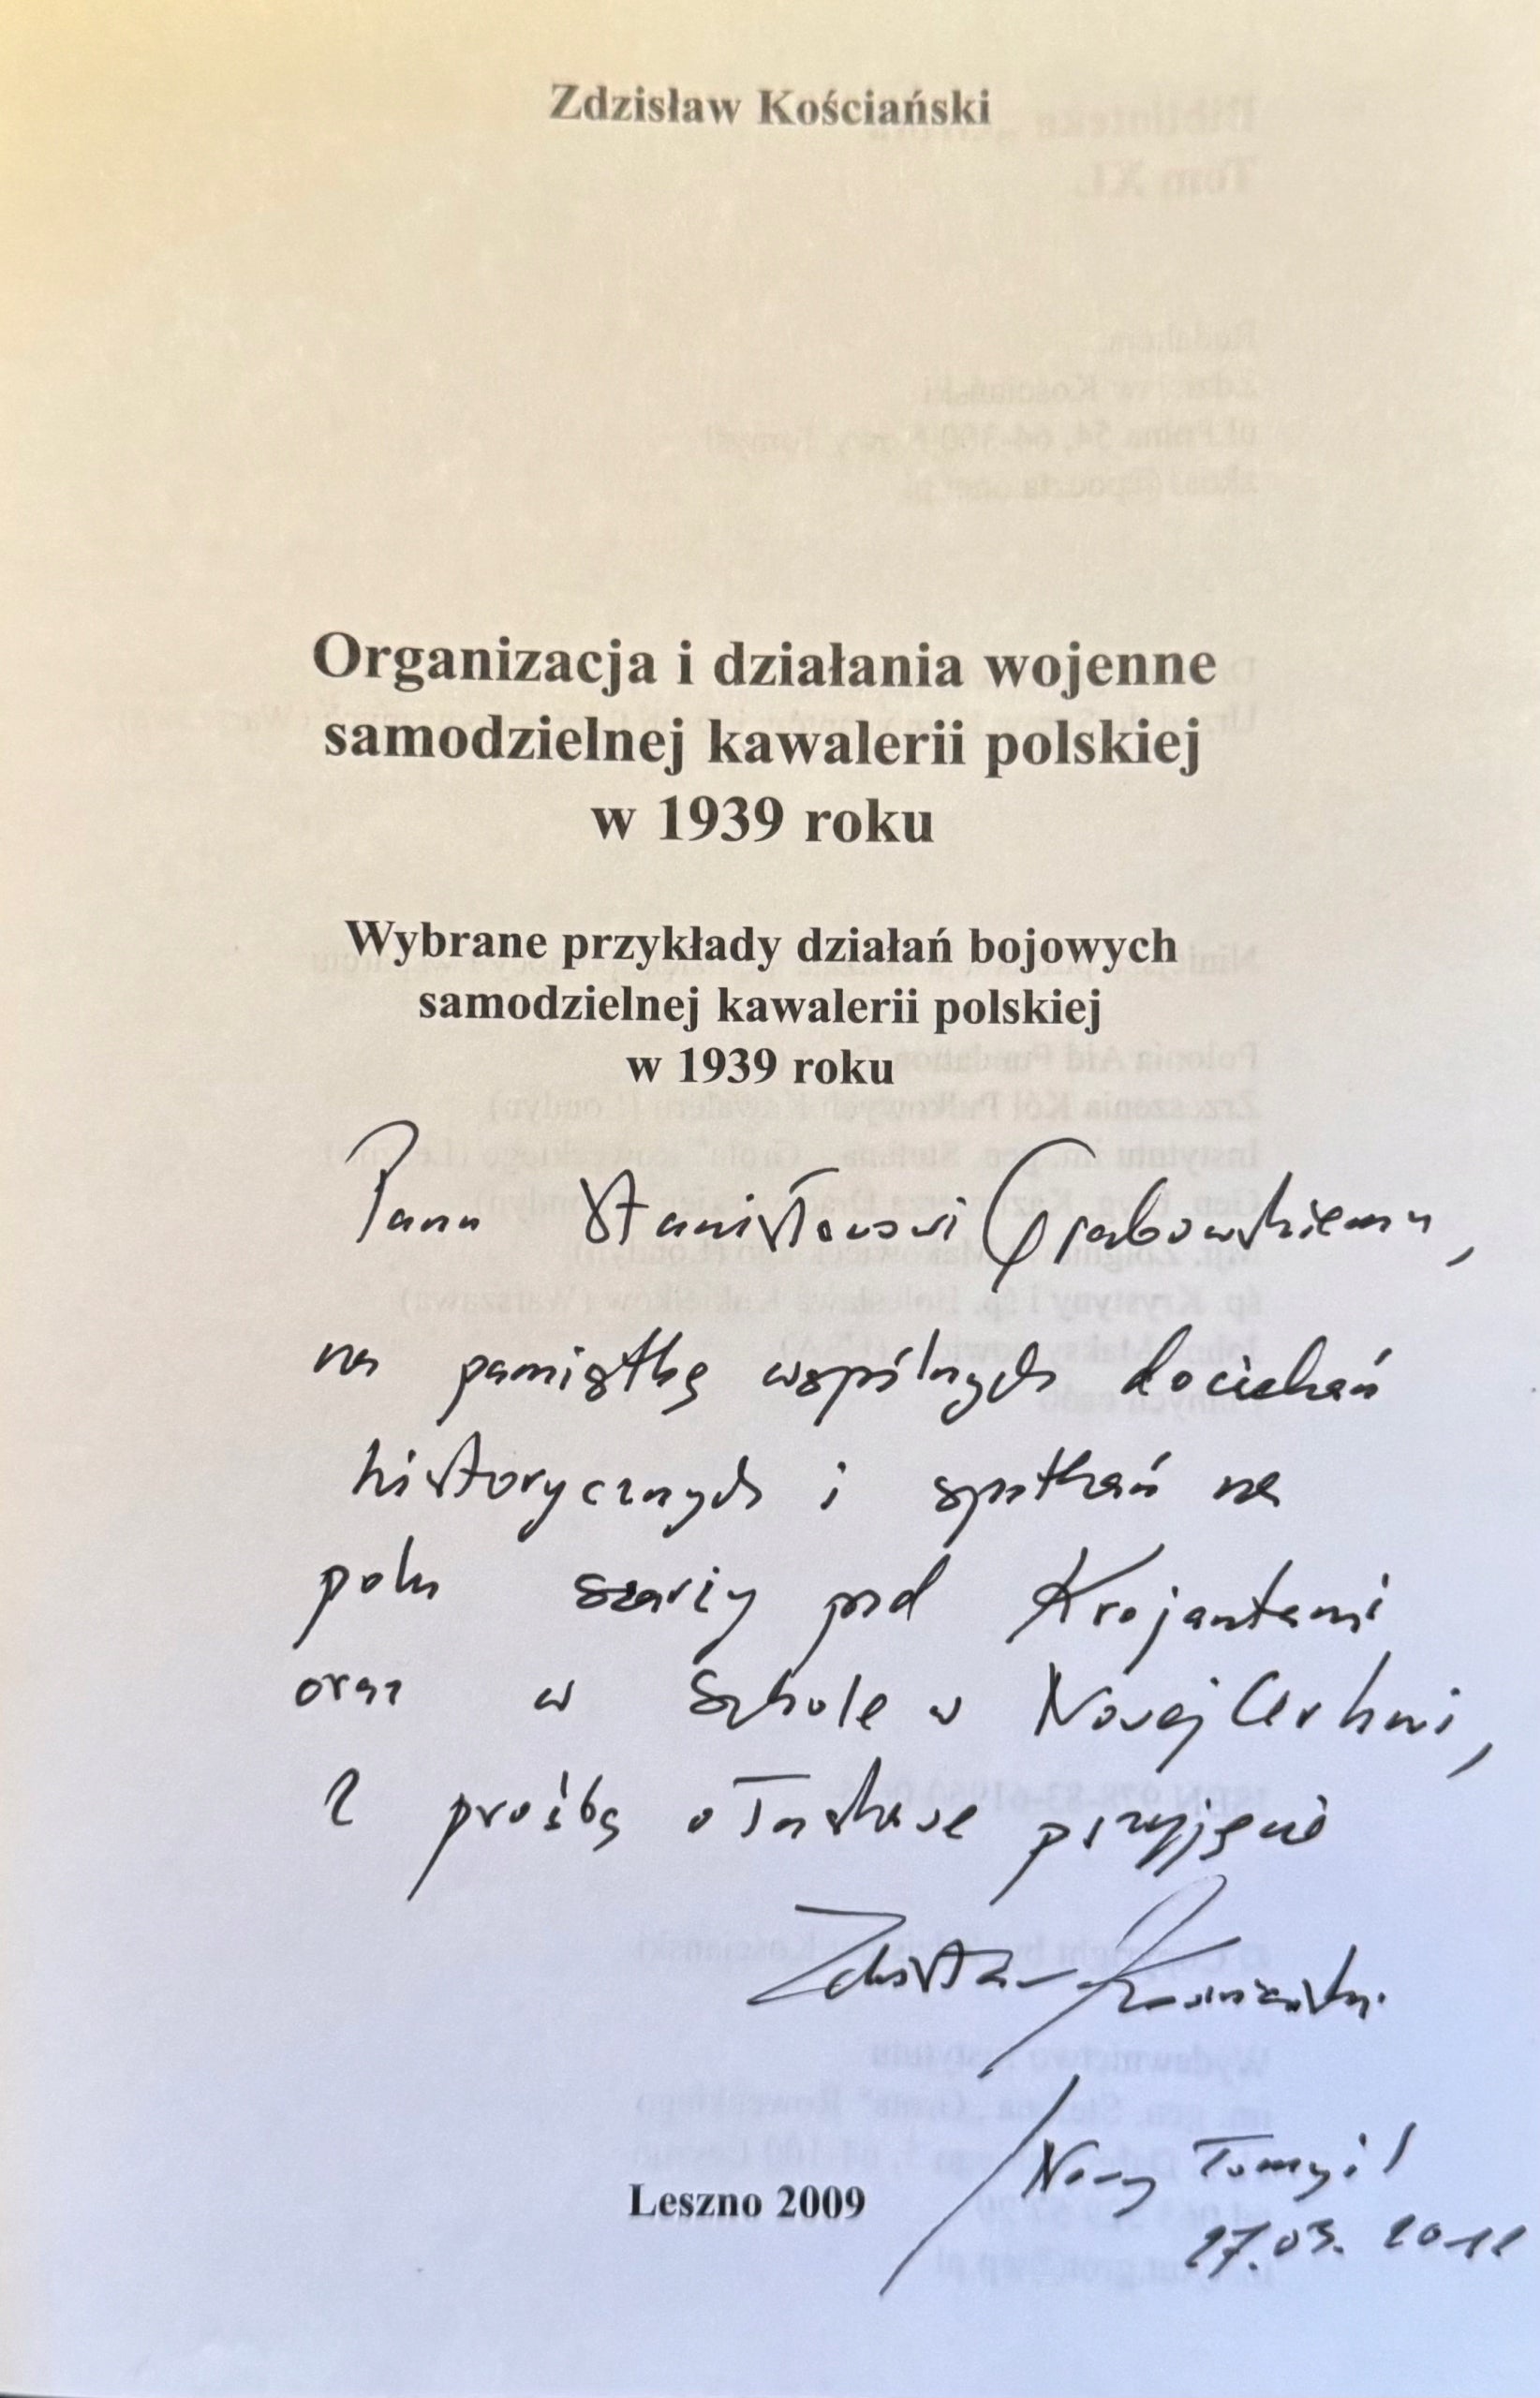 Zdzisław Kościański
Organizacja i działania wojenne
samodzielnej kawalerii polskiej
w 1939 roku
Wybrane przykłady działań bojowych
samodzielnej kawalerii polskiej
w 1939 roku
Panu Stanisławowi Grabowskiemu,
na pamiątkę wspólnych dociekań
historycznych i spotkań na
polu szarży pod Krojantami
oraz w szkole w Nowej Cerkwi,
z prośbą o łaskawe przyjęcie
Zdzisław Kościański
Leszno 2009
Nowy Tomyśl